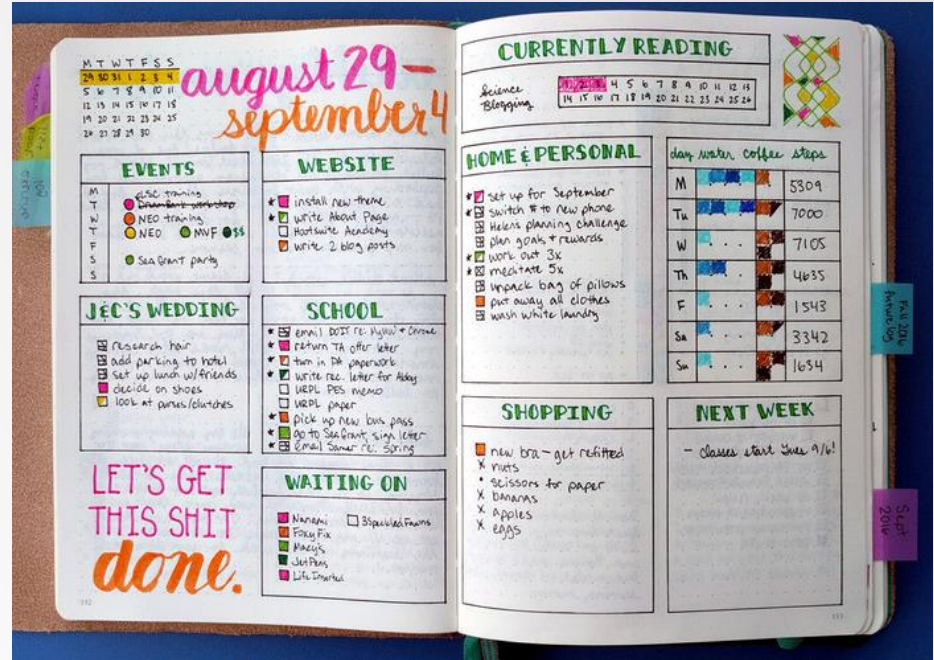 M T W T F S S
29 30 31 1 2 3 4
5 6 7 8 9 10 11
12 13 14 15 16 17 18
19 20 21 22 23 24 25
26 27 28 29 30
august 29 –
september 4
EVENTS
M LSC training
T
W NEO training
T NEO MVF $$
F
S Sea Grant party
S
WEBSITE
* install new theme
* write About Page
Hootsuite Academy
write 2 blog posts
J&C'S WEDDING
research hair
add parking to hotel
set up lunch w/friends
decide on shoes
look at purses/clutches
SCHOOL
* email DOIT re: MyUW + Chrome
* return TA offer letter
* turn in PA paperwork
* write rec. letter for Abby
URPL PES memo
URPL paper
* pick up new bus pass
* go to SeaGrant, sign letter
* email Samer re: Spring
LET'S GET
THIS SHIT
done.
WAITING ON
Nanami 3 Speckled Fawns
Foxy Fix
Macy's
JetPens
Life Inserted
CURRENTLY READING
Science
Blogging
1 2 3 4 5 6 7 8 9 10 11 12 13
14 15 16 17 18 19 20 21 22 23 24 25 26
HOME & PERSONAL
* set up for September
* switch # to new phone
Helens planning challenge
plan goals + rewards
* work out 3x
* meditate 5x
unpack bag of pillows
put away all clothes
wash white laundry
day water coffee steps
M 5309
Tu 7000
W 7105
Th 4635
F 1543
Sa 3342
Su 1654
SHOPPING
new bra – get refitted
x nuts
• scissors for paper
x bananas
x apples
x eggs
NEXT WEEK
– Classes start Tues 9/6!
Fall 2016
future log
Sept
2016